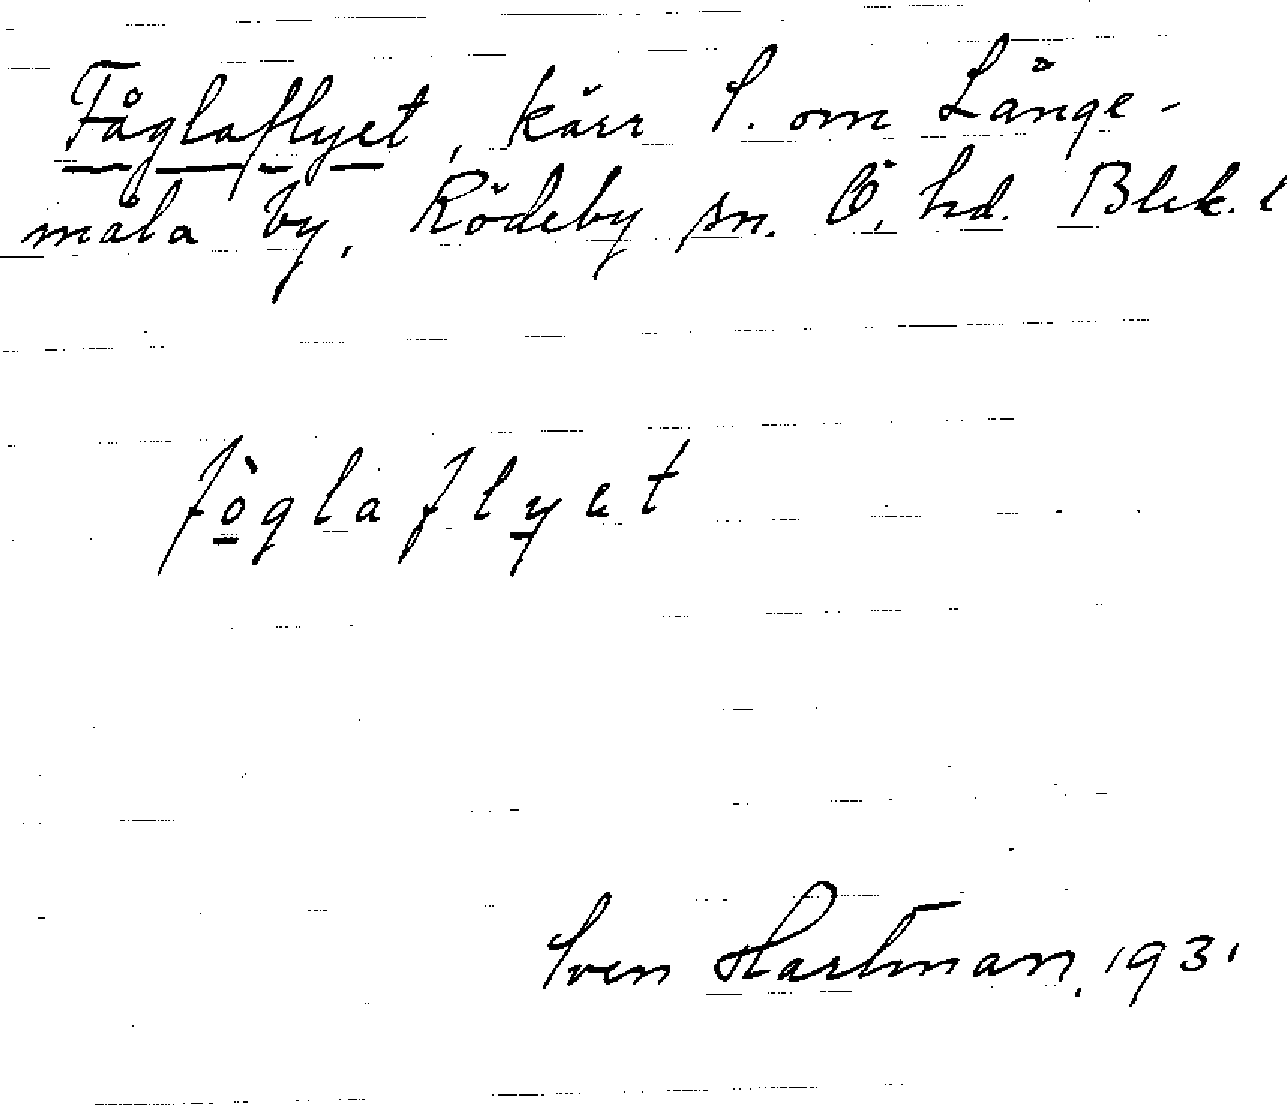 Fåglaflyet, kärr S. om Långe-
måla by, Rödeby sn. Ö. hd. Blek. l
fòglaflyet
Sven Hartman, 1931